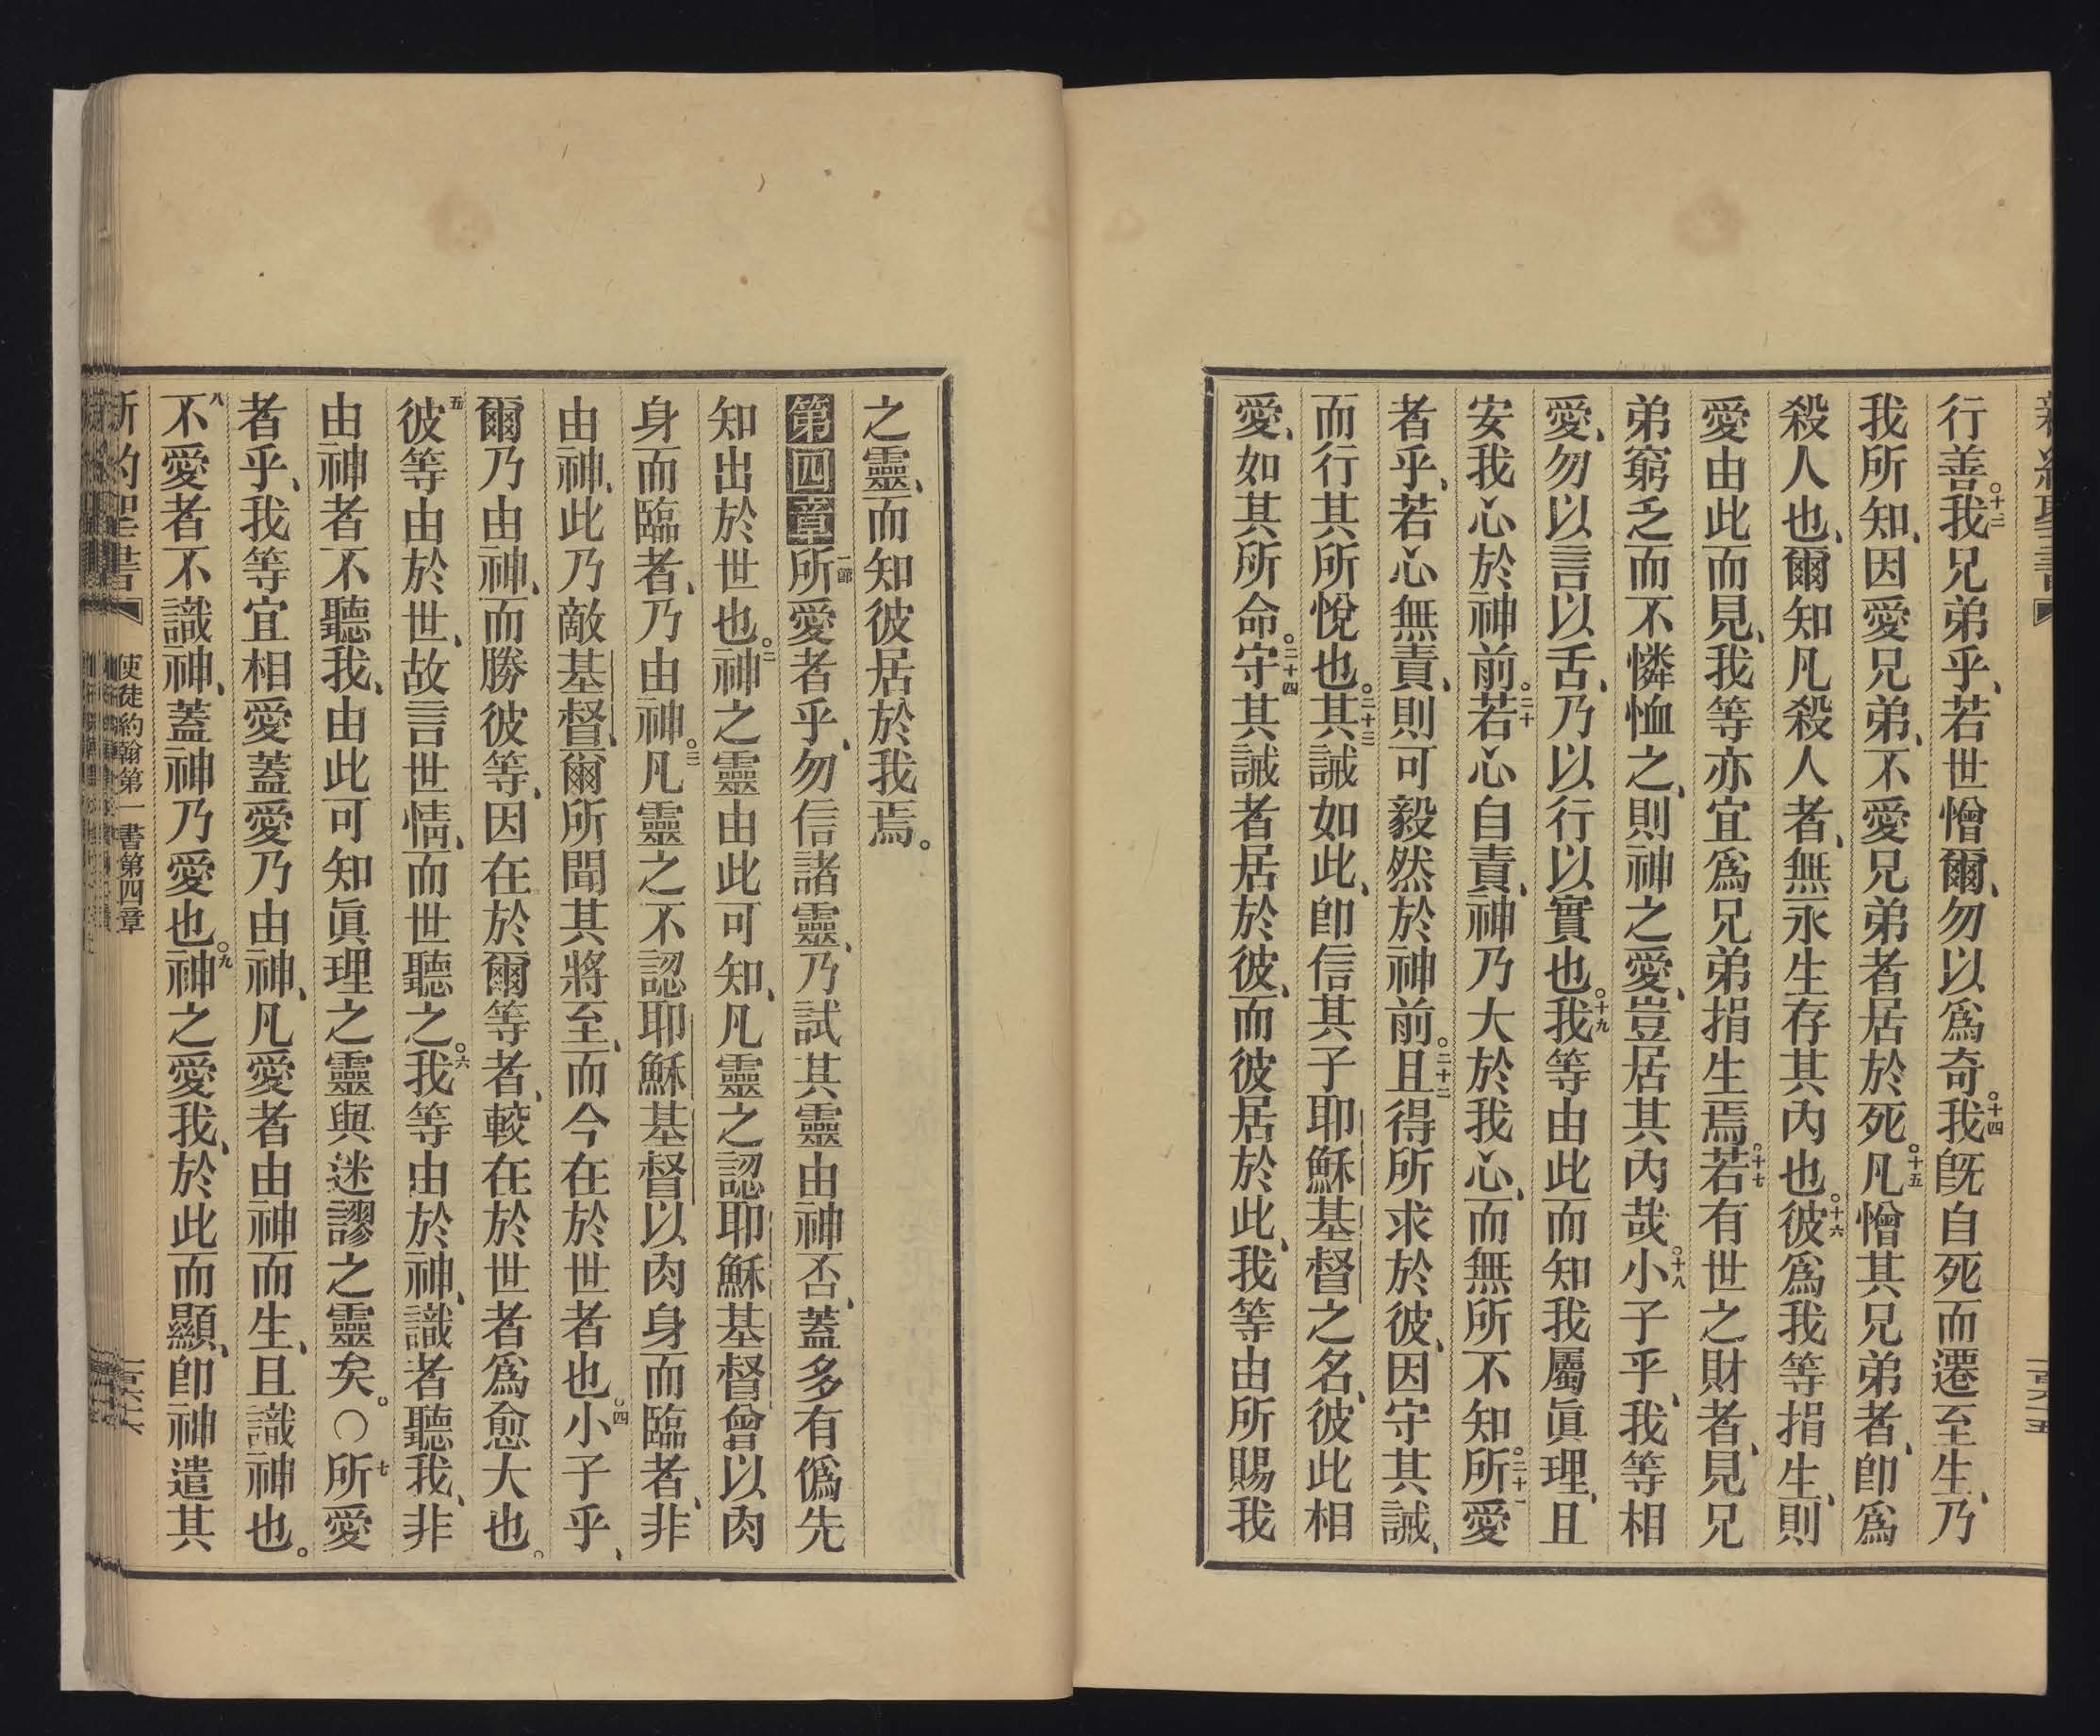 新約聖書
行善。十三我兄弟乎、若世憎爾、勿以爲奇。十四我旣自死而遷至生、乃
我所知、因愛兄弟、不愛兄弟者居於死。十五凡憎其兄弟者、卽爲
殺人也、爾知凡殺人者、無永生存其內也。十六彼爲我等捐生、則
愛由此而見、我等亦宜爲兄弟捐生焉。十七若有世之財者、見兄
弟窮乏而不憐恤之、則神之愛、豈居其內哉。十八小子乎、我等相
愛、勿以言以舌、乃以行以實也。十九我等由此而知我屬眞理、且
安我心於神前。二十若心自責、神乃大於我心、而無所不知。二十一所愛
者乎、若心無責、則可毅然於神前。二十二且得所求於彼、因守其誡、
而行其所悅也。二十三其誡如此、卽信其子耶穌基督之名、彼此相
愛、如其所命。二十四守其誡者居於彼、而彼居於此、我等由所賜我
之靈、而知彼居於我焉。
第四章一節所愛者乎、勿信諸靈、乃試其靈由神否、蓋多有僞先
知出於世也。二神之靈由此可知、凡靈之認耶穌基督曾以肉
身而臨者、乃由神。三凡靈之不認耶穌基督以肉身而臨者、非
由神、此乃敵基督、爾所聞其將至、而今在於世者也。四小子乎、
爾乃由神、而勝彼等、因在於爾等者、較在於世者爲愈大也。
五彼等由於世、故言世情、而世聽之。六我等由於神、識者聽我、非
由神者不聽我、由此可知眞理之靈與迷謬之靈矣。〇七所愛
者乎、我等宜相愛蓋愛乃由神、凡愛者由神而生、且識神也。
八不愛者不識神、蓋神乃愛也。九神之愛我、於此而顯、卽神遣其
新約聖書 使徒約翰第一書第四章